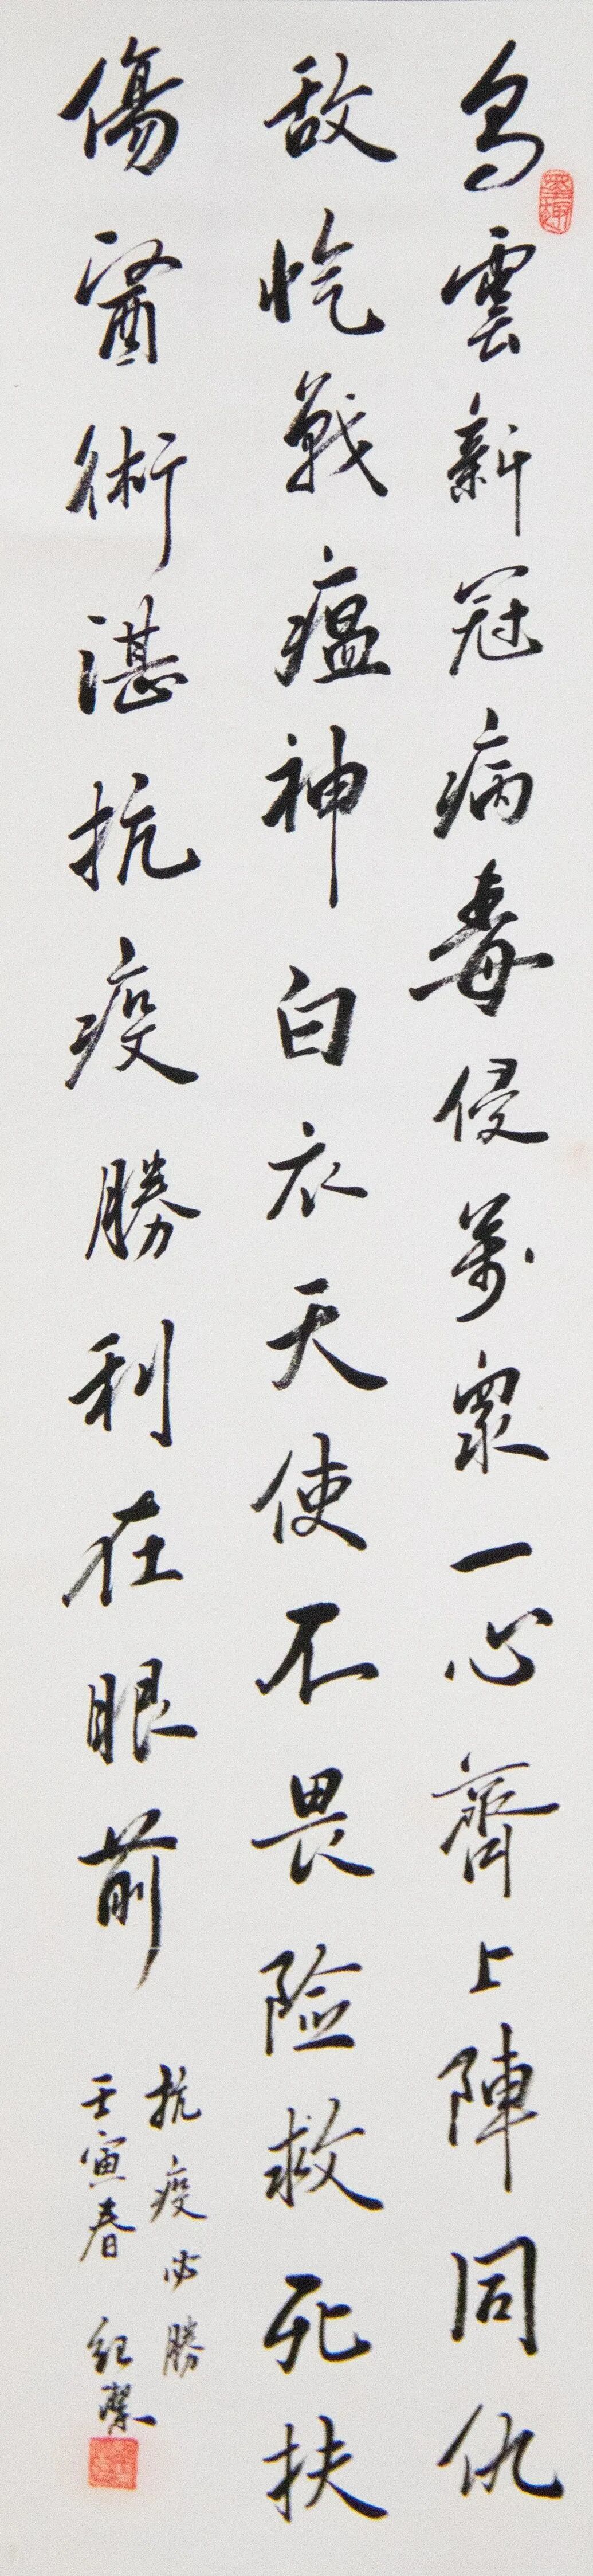 烏雲新冠病毒侵萬衆一心齊上陣同仇
敌忾戰瘟神白衣天使不畏险救死扶
傷醫術湛抗疫勝利在眼前
抗疫必勝
壬寅春 紀